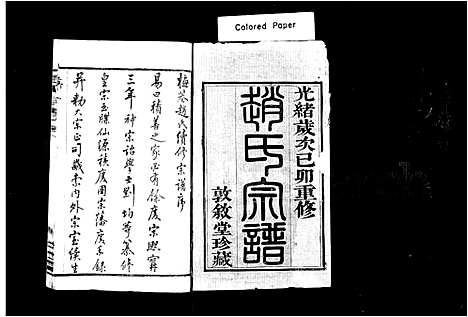 Colored Paper
光緒歲次己卯重修
趙氏宗譜
敦敘堂珍藏
梅谷趙氏續修宗譜序
易曰積善之家必有餘慶宗熙寧
三年神宗詔學士劉均等纂修
皇宗玉牒仙源積慶圖宗藩慶系錄
并勅大宗正司歲索內外宗室係生